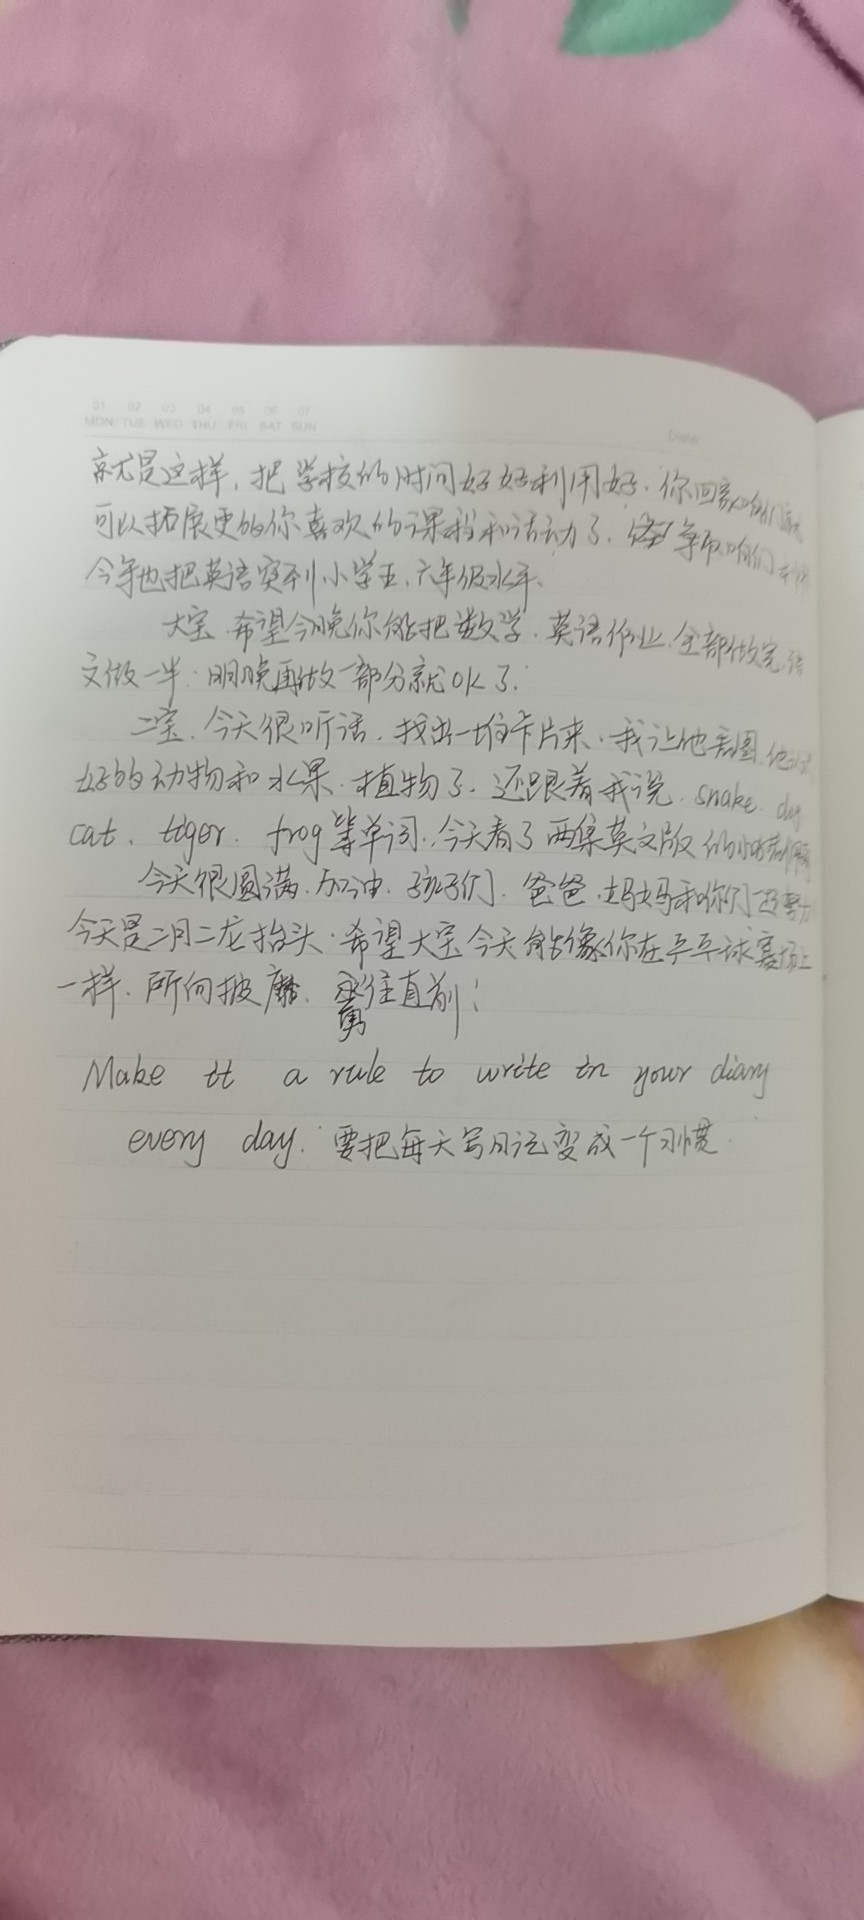 01 02 03 04 05 06 07
MON TUE WED THU FRI SAT SUN
Date
就是这样，把学校的时间好好利用好，你回家咱们就
可以拓展更的你喜欢的课程和活动了，争取咱们
今年也把英语突到小学五、六年级水平。
大宝，希望今晚你能把数学、英语作业全部做完，语
文做一半，明晚再做一部分就OK了。
二宝，今天很听话，找出一堆卡片来，我让他看图，他
好的动物和水果、植物了，还跟着我说，snake. dog
cat、tiger、frog等单词，今天看了两集英文版的小
今天很圆满，加油，孩子们，爸爸、妈妈和你们一起努力
今天是二月二龙抬头，希望大宝今天能像你在乒乓球赛场上
一样，所向披靡，勇往直前！
Make it a rule to write in your diary
every day. 要把每天写日记变成一个习惯.